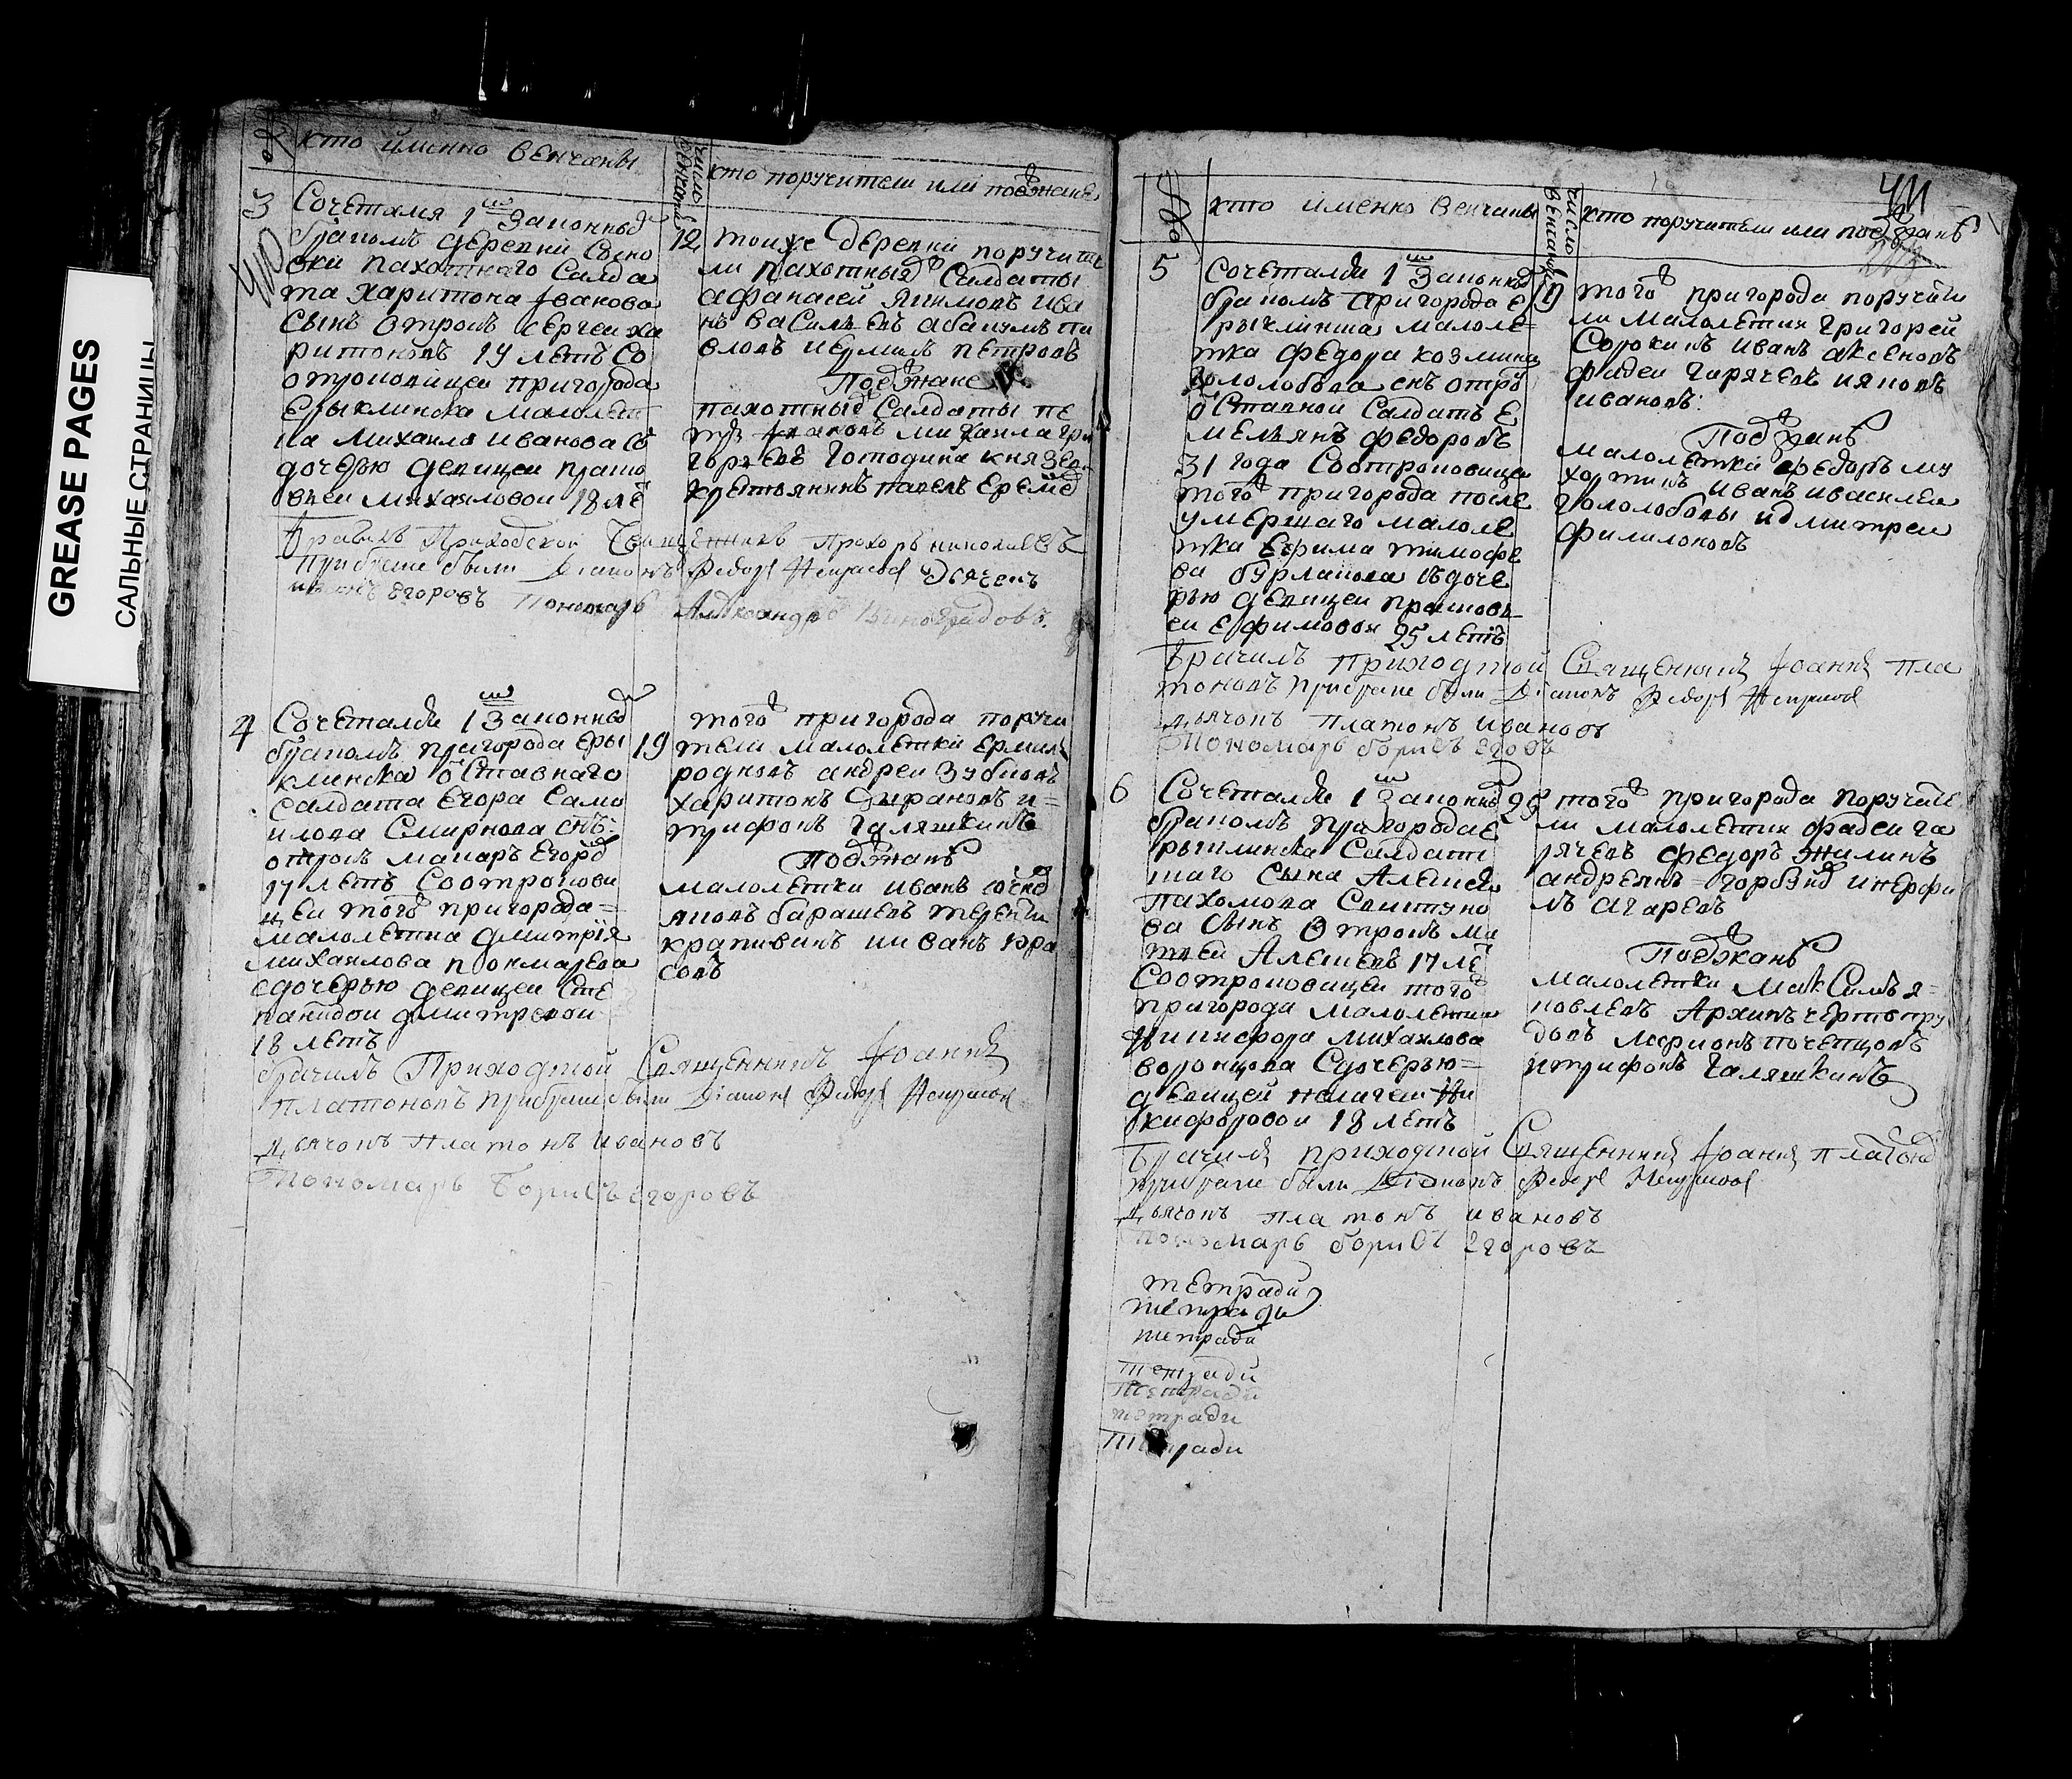 GREASE PAGES
САЛЬНЫЕ СТРАНИЦЫ
кто именно венчаны
число венчан
кто поручители или поезжане
3
Сочетался 1 м законны
браком деревни Сосно
вки пахотнаго Салда
та харитона Иванова
сынъ отрокъ сергеи ха
ритоновъ 19 летъ Со
отроковицеи пригорода
Ерыклинска малолет
ка михаила иванова съ
дочерью девицеи праско
веи михаиловои 18 ле
12
тоиже деревни поручите
ли пахотныя Салдаты
афанасеи якимовъ ива
нъ василъевъ абакумъ па
вловъ иермилъ петровъ
Поезжане
пахотныя Салдаты пе
михаила гри
горьевъ господина князе
крестьянинъ павелъ ереме
Бракъ Приходской Священникъ Прохоръ николаевъ
При браке были Диаконъ Федоръ дьячекъ
иванъ егоровъ Пономарь Александръ Виноградовъ.
4
Сочетался 1 законны
бракомъ пригорода еры
клинска оставнаго
салдата егора само
илова Смирнова снъ
отрокъ макаръ егоро
17 летъ Соотрокови
цеи того пригорода
малолетка дмитрия
михаилова понкмарева
сдочерью девицеи сте
панидои дмитревои
18 летъ
19
того пригорода поручи
тели малолетки ермилъ
родновъ андреи зубковъ
харитонъ Сырановъ и
трифонъ галяшкинъ
Поезжанъ
малолетки иванъ
яковъ барашевъ терентии
крапивинъ ииванъ кра
совъ
брачилъ Приходской Священникъ Иоаннъ
платоновъ при браке были Диаконъ Федоръ
Дьячокъ платонъ ивановъ
Пономарь Борисъ егоровъ
кто именно венчаны
число венчаны
кто поручители или поезжанъ
411
5
Сочетался 1 законны
бракомъ пригорода е
рыклинска малоле
тка федора козмина
Гололобова снъ отро
оставнои Салдатъ е
мельянъ федоровъ
31 года Соотроковицеи
того пригорода после
умершаго малоле
тка ефима тимофе
ва бурлакова съдоче
рью девицеи прасковь
еи ефимовои 25 летъ
19
того пригорода поручите
ли малолетки григореи
Сорокинъ иванъ аксеновъ
фадеи горячевъ ияковъ
ивановъ
Поезжанъ
малолетки федоръ му
хортинъ иванъ ивасилеи
гололобовы идмитреи
филимоновъ
Брачилъ приходской Священникъ Иоаннъ Пла
тоновъ при браке были Диаконъ Федоръ
Дьячокъ платонъ ивановъ
Пономарь борисъ егоровъ
6
Сочетался 1 законны
бракомъ пригорода е
рыклинска Салдатс
каго сына Алексея
пахомова Свистуно
ва сынъ отрокъ ма
твеи Алексеевъ 17 ле
Соотроковицеи того
пригорода малолетка
никифора михаилова
воронцова Сдочерью
девицеи пелагеи ни
кифоровои 18 летъ
того пригорода поручите
ли малолетки фадеи га
рячевъ федоръ жилинъ
андреянъ горбуно ипорфи
лъ агаревъ
Поезжанъ
малолетки максимъ я
ковлевъ Архипъ чертопру
довъ
итрифонъ галяшкинъ
Брачилъ приходской Священникъ Иоаннъ платоно
при браке были Диаконъ Федоръ
Дьячокъ платонъ ивановъ
пономарь борисъ егоровъ
тетради
тетради
тетради
тетради
тетради
тетради
тетради